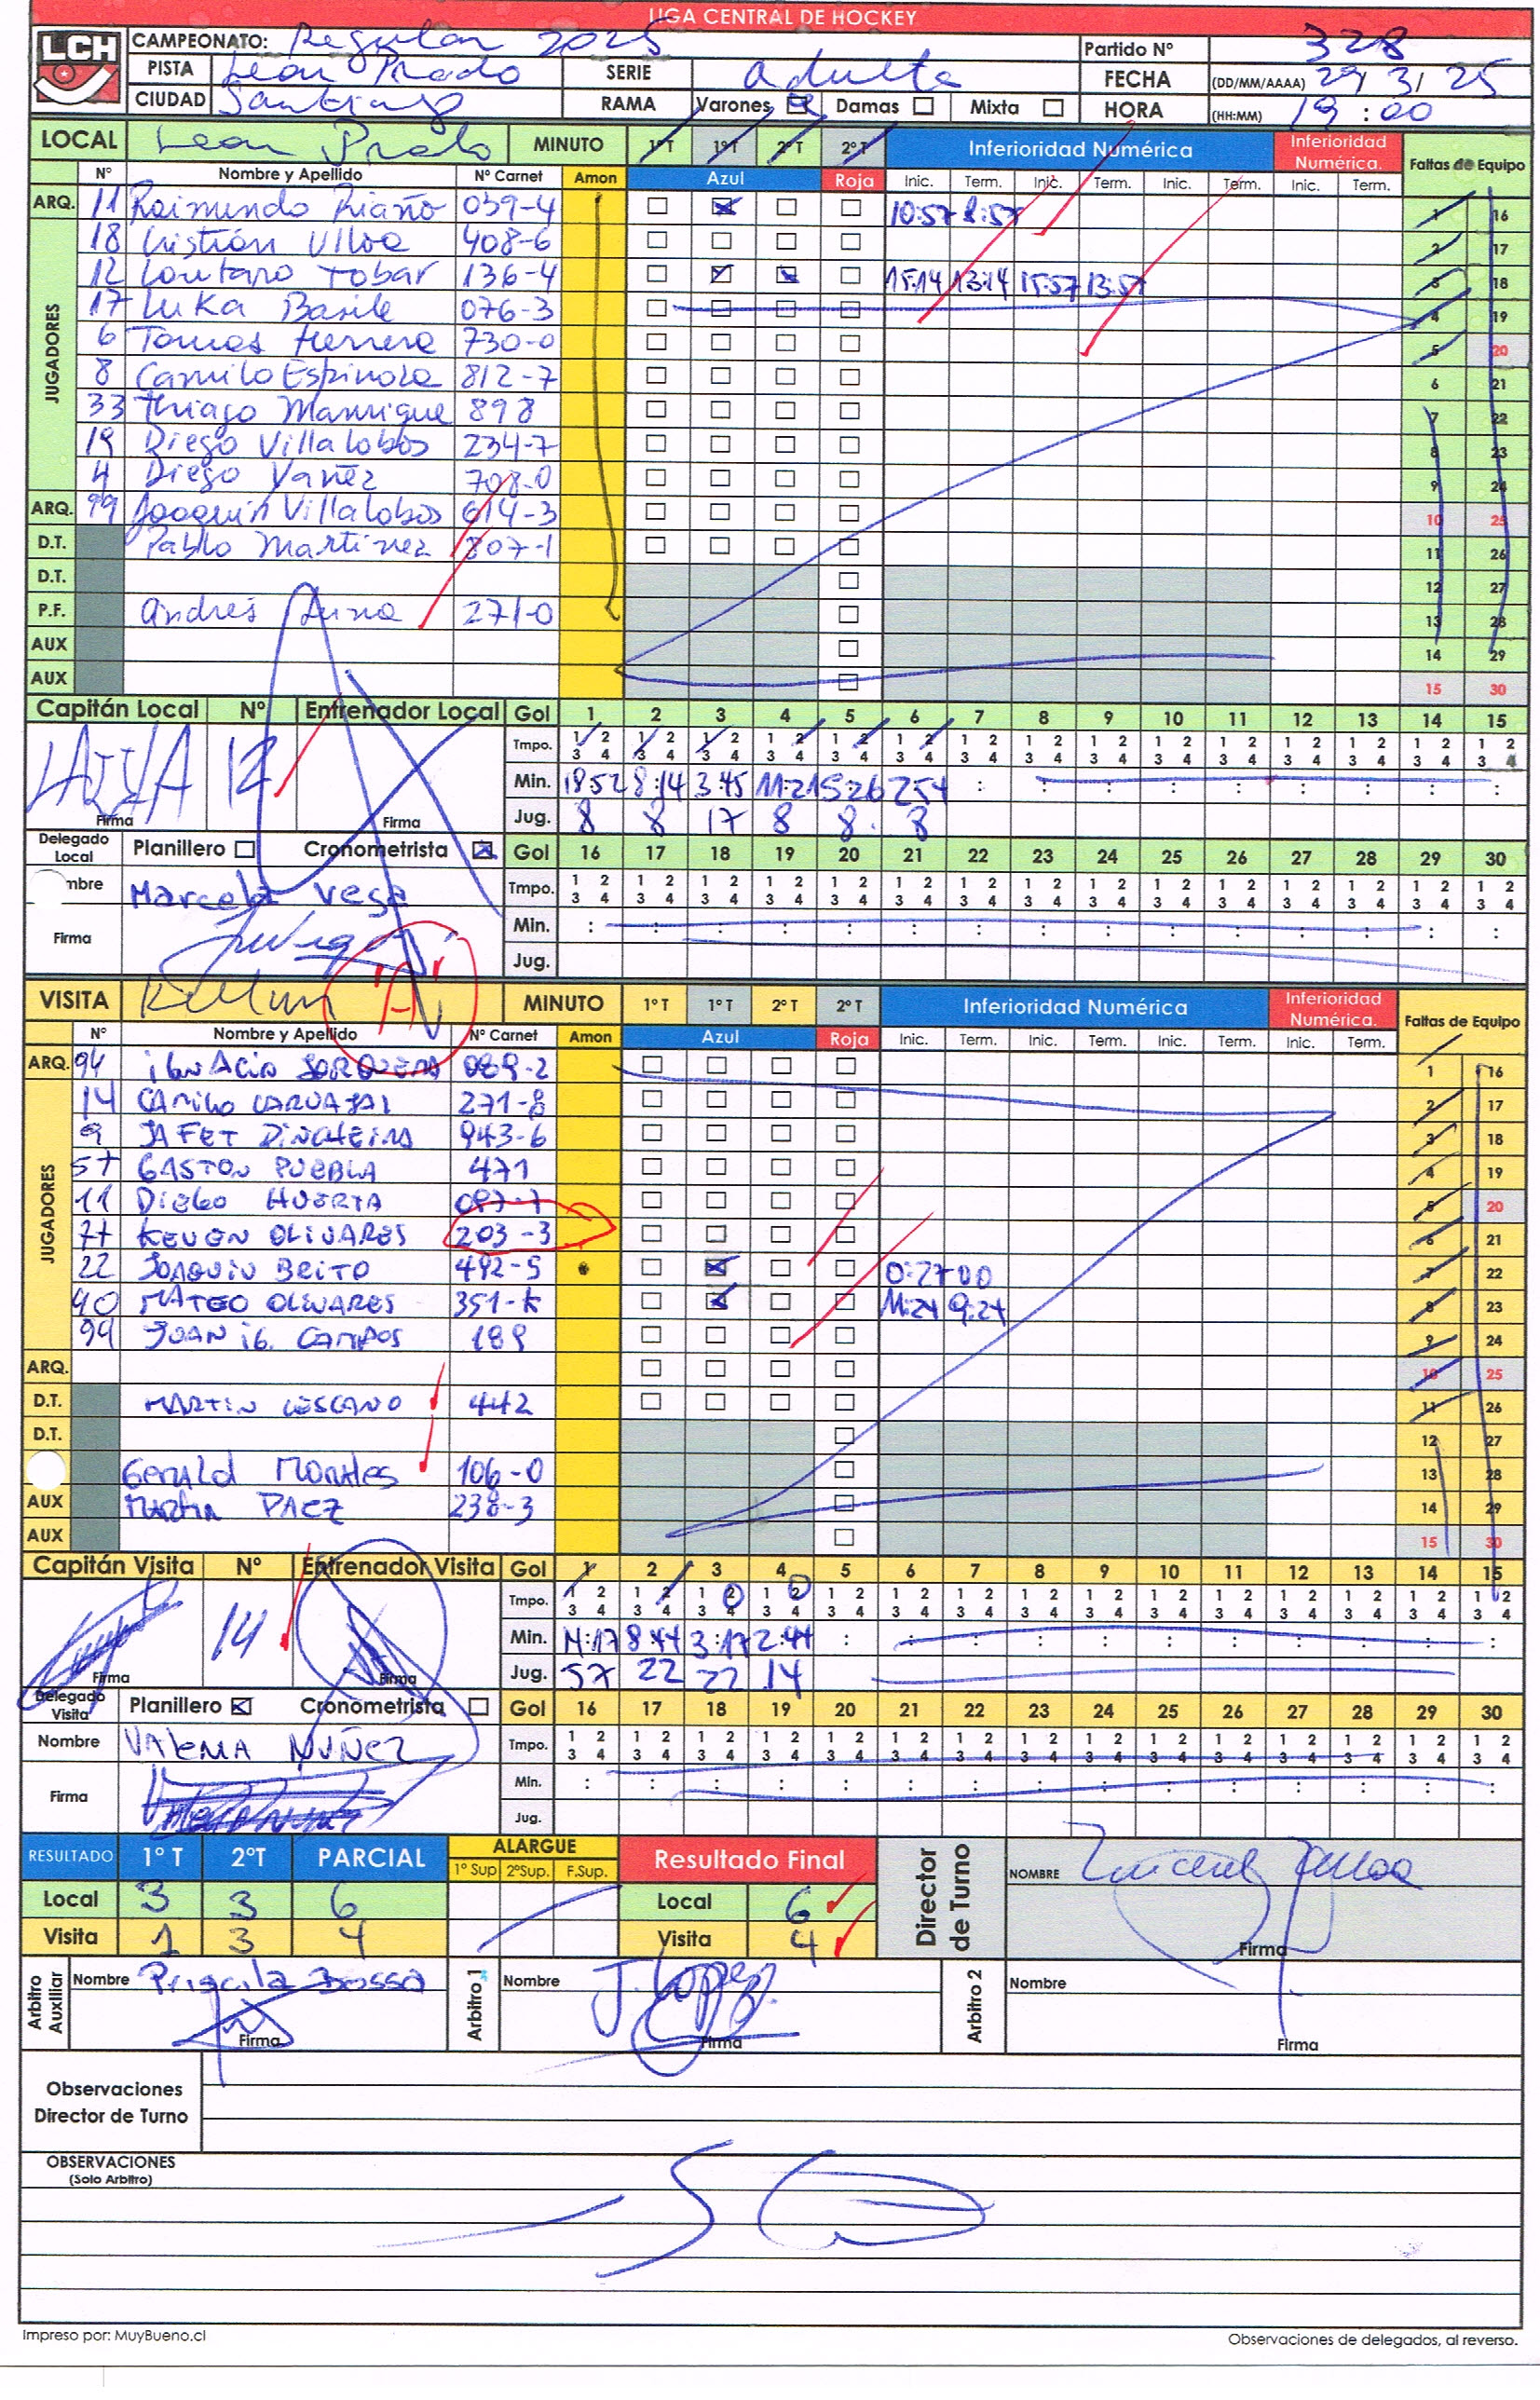 LIGA CENTRAL DE HOCKEY
LCH
CAMPEONATO: Regular 2025 Partido Nº 328
PISTA Leon Prado SERIE adulta FECHA (DD/MM/AAAA) 29/3/25
CIUDAD Santiago RAMA Varones Damas Mixta HORA (HH:MM) 19:00
LOCAL Leon Prado MINUTO 1ºT 1ºT 2ºT 2ºT Inferioridad Numérica Inferioridad Numérica. Faltas de Equipo
Nº Nombre y Apellido Nº Carnet Amon Azul Roja Inic. Term. Inic. Term. Inic. Term. Inic. Term.
ARQ. 11 Raimundo Riaño 059-4 10:57 8:57 1 16
18 Cristián Ulloa 408-6 2 17
12 Lautaro Tobar 136-4 15:14 13:14 15:57 13:57 3 18
JUGADORES
17 Luka Basile 076-3 4 19
6 Tomas Herrera 730-0 5 20
8 Camilo Espinoza 812-7 6 21
33 Thiago Manrique 898 7 22
19 Diego Villalobos 234-7 8 23
4 Diego Yañez 708-0 9 24
ARQ. 99 Joaquin Villalobos 614-3 10 25
D.T. Pablo Martinez 807-1 11 26
D.T. 12 27
P.F. Andrés Luna 271-0 13 28
AUX 14 29
AUX 15 30
Capitán Local Nº Entrenador Local Gol 1 2 3 4 5 6 7 8 9 10 11 12 13 14 15
Tmpo. 1 2 3 4
12 Min. 18:52 8:14 3:45 11:21 5:26 2:54
Firma Firma Jug. 8 8 17 8 8 8
Delegado Local Planillero Cronometrista Gol 16 17 18 19 20 21 22 23 24 25 26 27 28 29 30
mbre Marcela Vega Tmpo. 1 2 3 4
Firma Min.
Jug.
VISITA MINUTO 1ºT 1ºT 2ºT 2ºT Inferioridad Numérica Inferioridad Numérica. Faltas de Equipo
Nº Nombre y Apellido Nº Carnet Amon Azul Roja Inic. Term. Inic. Term. Inic. Term. Inic. Term.
ARQ. 94 IGNACIO JORQUERA 089-2 1 16
14 CAMILO CARVAJAL 271-8 2 17
9 JAFET DINCHEIRA 943-6 3 18
JUGADORES
57 GASTON PUEBLA 471 4 19
11 DIEGO HUERTA 097-7 5 20
77 KEVEN OLIVARES 203-3 6 21
22 JOAQUIN BRITO 492-5 0:27 00 7 22
40 MATEO OLIVARES 351-K 11:24 9:24 8 23
99 JUAN IG. CAMPOS 189 9 24
ARQ. 10 25
D.T. MARTIN LESCANO 442 11 26
D.T. 12 27
Gerald Morales 106-0 13 28
AUX Martin PAEZ 238-3 14 29
AUX 15 30
Capitán Visita Nº Entrenador Visita Gol 1 2 3 4 5 6 7 8 9 10 11 12 13 14 15
Tmpo. 1 2 3 4
14 Min. 14:17 8:44 3:17 2:44
Firma Firma Jug. 57 22 22 14
Delegado Visita Planillero Cronometrista Gol 16 17 18 19 20 21 22 23 24 25 26 27 28 29 30
Nombre VALERIA NUÑEZ Tmpo. 1 2 3 4
Firma Min.
Jug.
RESULTADO 1º T 2ºT PARCIAL ALARGUE 1º Sup 2ºSup. F.Sup. Resultado Final Director de Turno NOMBRE
Local 3 3 6 Local 6
Visita 1 3 4 Visita 4 Firma
Arbitro Auxiliar Nombre Priscila Bossa Arbitro 1 Nombre J. Lopez. Arbitro 2 Nombre
Firma Firma Firma
Observaciones
Director de Turno
OBSERVACIONES
(Solo Arbitro)
Impreso por: MuyBueno.cl Observaciones de delegados, al reverso.